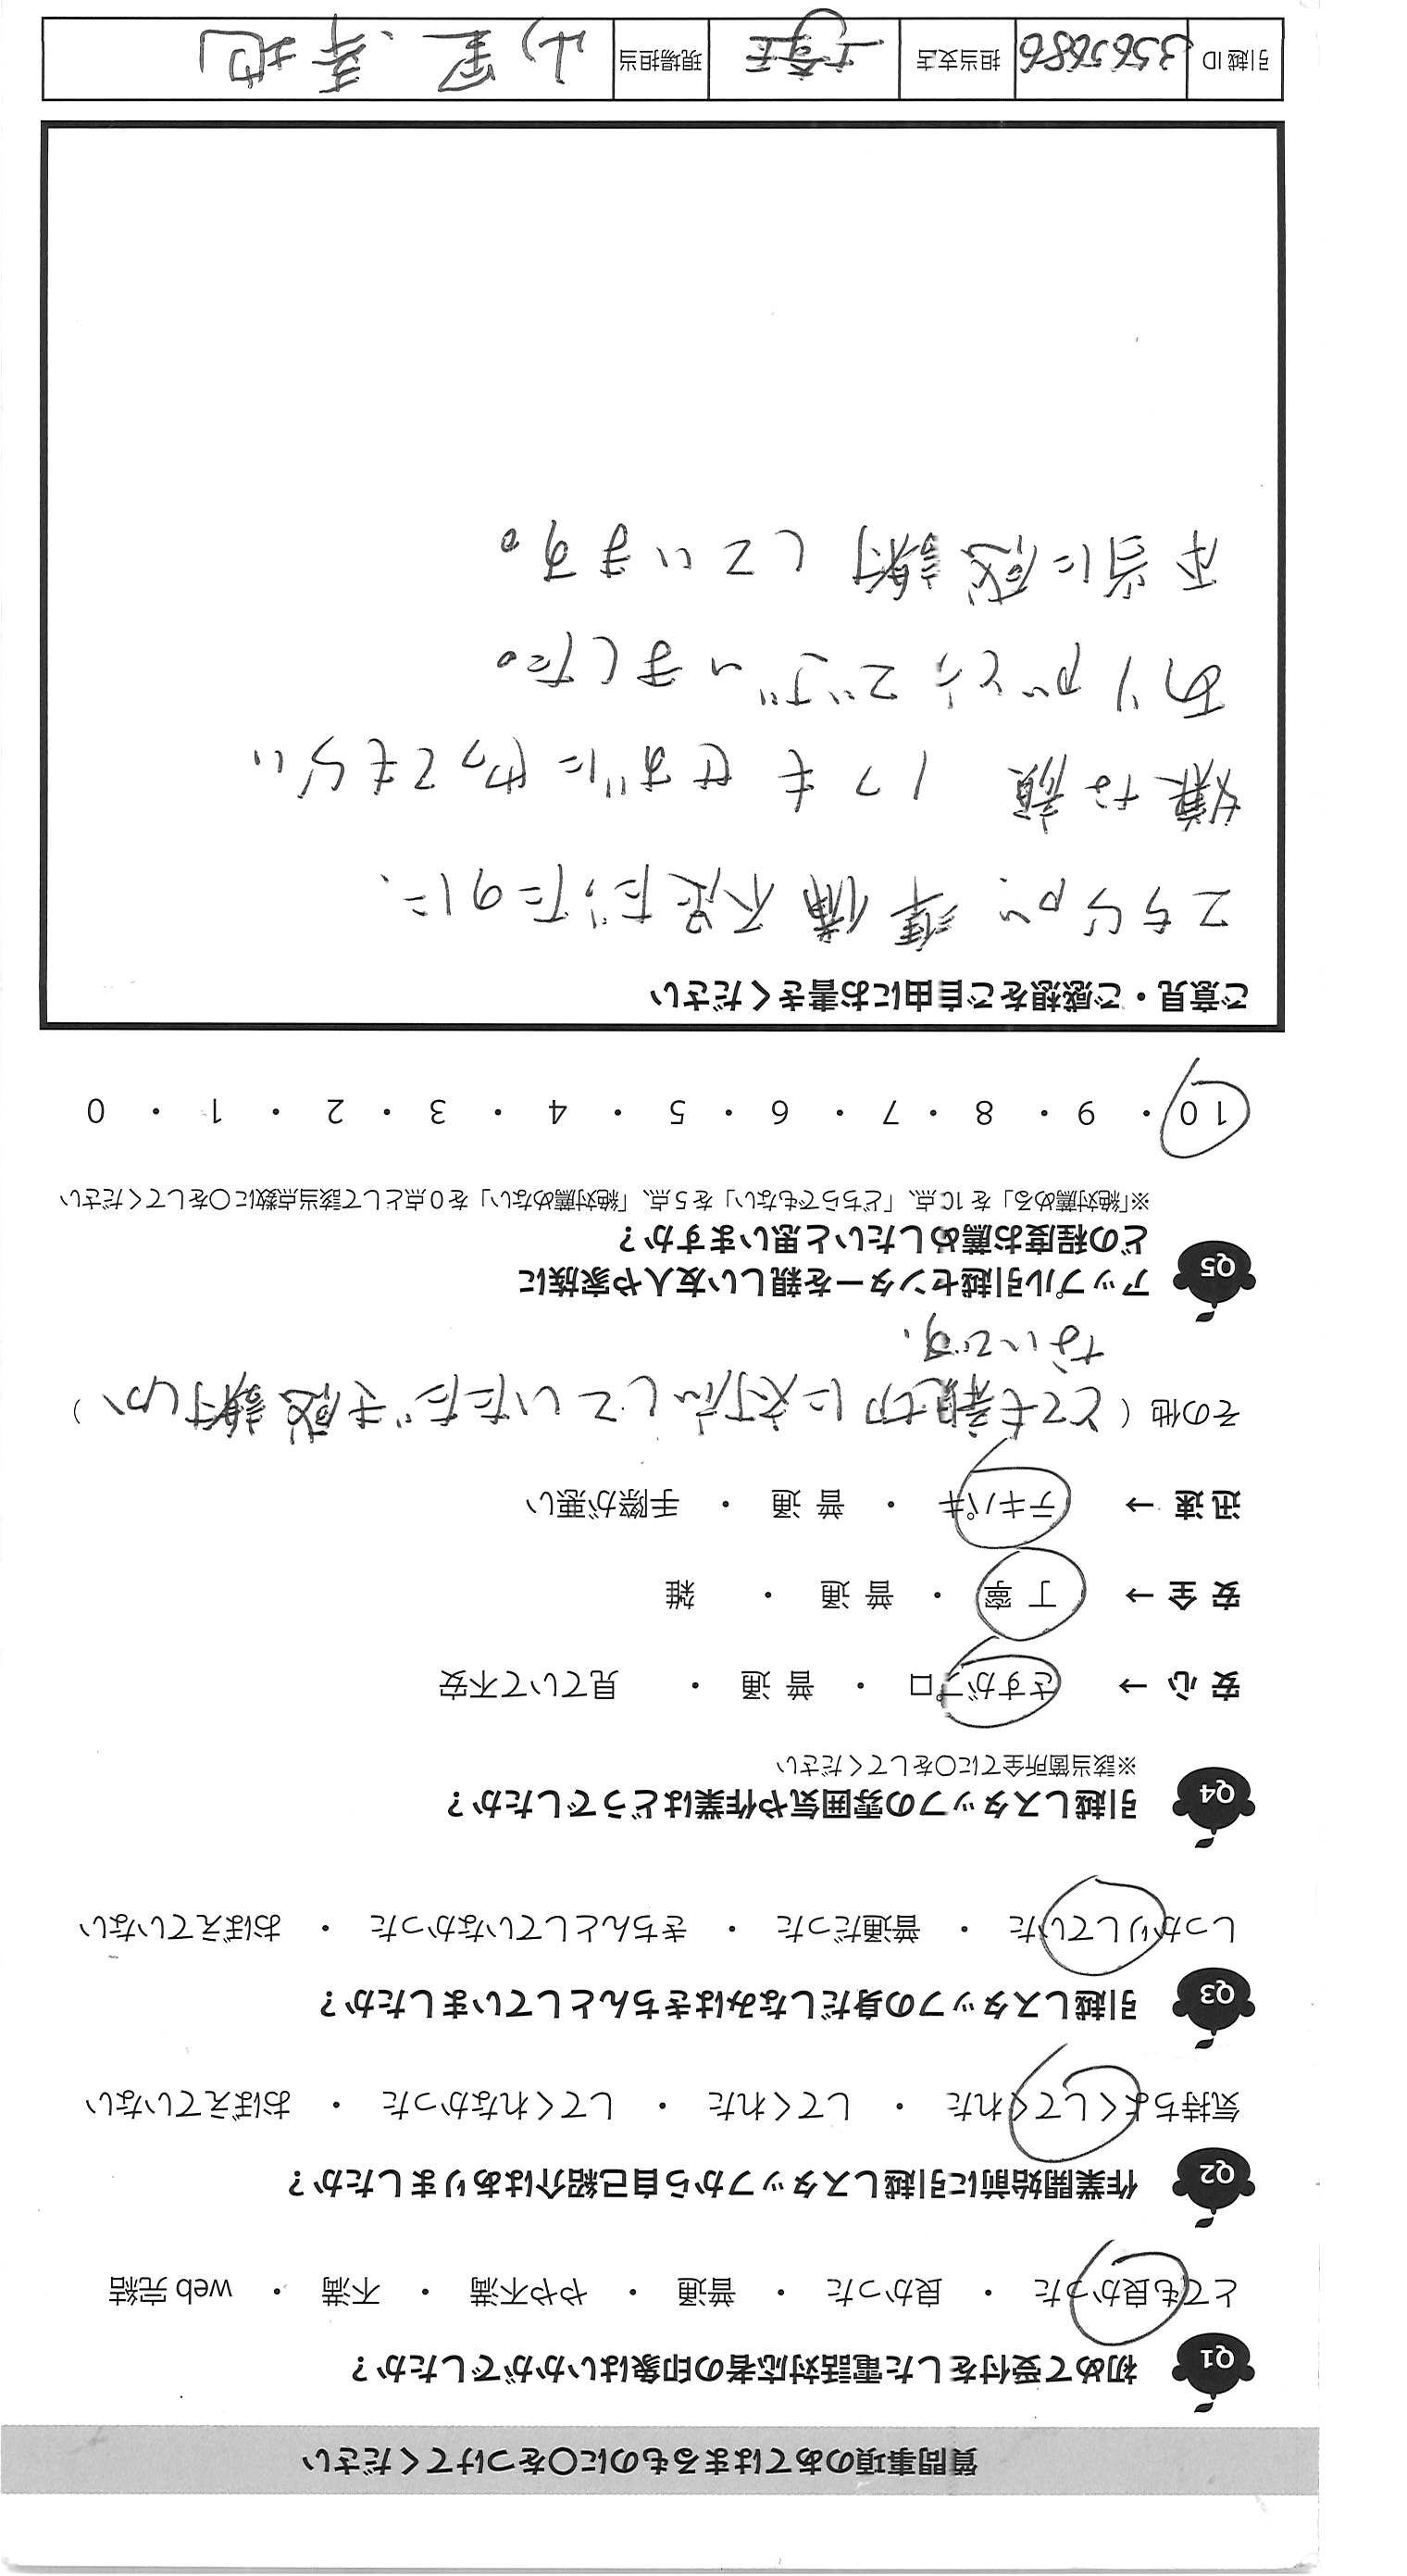 質問事項のあてはまるものに〇をつけてください
Q1 初めて受付をした電話対応者の印象はいかがでしたか？
とても良かった ・ 良かった ・ 普通 ・ やや不満 ・ 不満 ・ web 完結
Q2 作業開始前に引越しスタッフから自己紹介はありましたか？
気持ちよくしてくれた ・ してくれた ・ してくれなかった ・ おぼえていない
Q3 引越しスタッフの身だしなみはきちんとしていましたか？
しっかりしていた ・ 普通だった ・ きちんとしていなかった ・ おぼえていない
Q4 引越しスタッフの雰囲気や作業はどうでしたか？
※該当箇所全てに〇をしてください
安 心 → さすがプロ ・ 普 通 ・ 見ていて不安
安 全 → 丁 寧 ・ 普 通 ・ 雑
迅 速 → テキパキ ・ 普 通 ・ 手際が悪い
その他（とても親切に対応していただき感謝しか）
ないです。
Q5 アップル引越センターを親しい友人や家族に
どの程度お薦めしたいと思いますか？
※「絶対薦める」を10点、「どちらでもない」を5点、「絶対薦めない」を0点として該当点数に〇をしてください
10 ・ 9 ・ 8 ・ 7 ・ 6 ・ 5 ・ 4 ・ 3 ・ 2 ・ 1 ・ 0
ご意見・ご感想をご自由にお書きください
こちらが準備不足だったのに、
嫌な顔1つもせずにやってもらい
ありがとうございました。
本当に感謝しています。
引越 ID 3565686 担当支店 現場担当